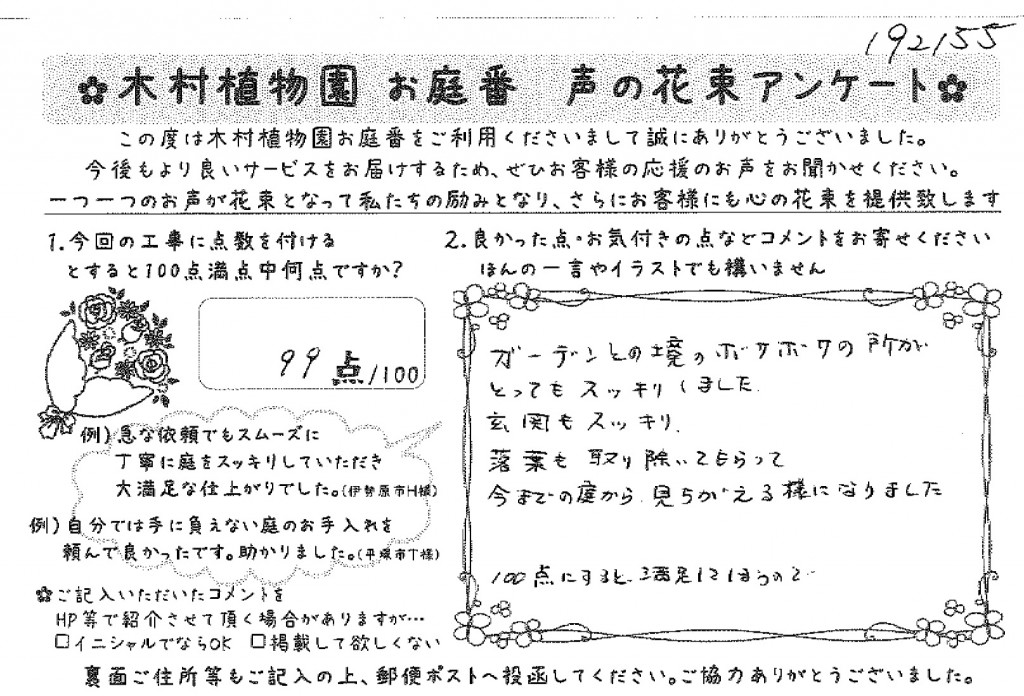 192155
✿木村植物園 お庭番 声の花束アンケート✿
この度は木村植物園お庭番をご利用くださいまして誠にありがとうございました。
今後もより良いサービスをお届けするため、ぜひお客様の応援のお声をお聞かせください。
一つ一つのお声が花束となって私たちの励みとなり、さらにお客様にも心の花束を提供致します
1.今回の工事に点数を付ける
とすると100点満点中何点ですか?
99 点/100
例)急な依頼でもスムーズに
丁寧に庭をスッキリしていただき
大満足な仕上がりでした。(伊勢原市H様)
例)自分では手に負えない庭のお手入れを
頼んで良かったです。助かりました。(平塚市T様)
✿ご記入いただいたコメントを
HP等で紹介させて頂く場合がありますが…
□イニシャルでならOK □掲載して欲しくない
2.良かった点・お気付きの点などコメントをお寄せください
ほんの一言やイラストでも構いません
ガーデンとの境のボサボサの所が
とってもスッキリしました.
玄関もスッキリ.
落葉も取り除いてもらって
今までの庭から.見ちがえる様になりました
100点にすると、満足してしまうので
裏面ご住所等もご記入の上、郵便ポストへ投函してください。ご協力ありがとうございました。